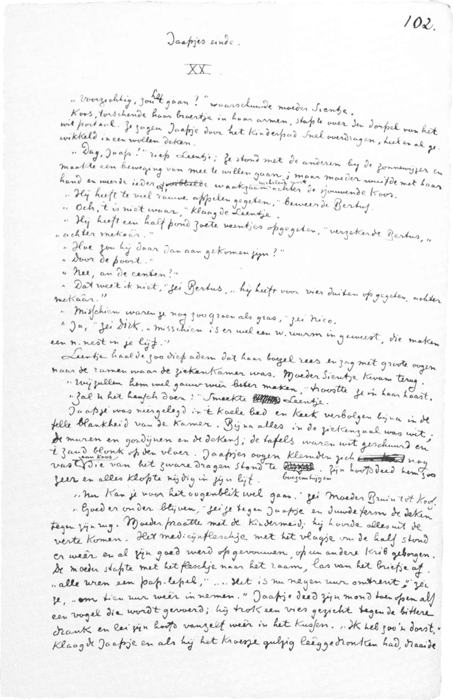 102.
Jaapjes einde.
XX
„Voorzichtig, zou het gaan?" waarschuwde moeder Sientje.
Koos, torschende haar broertje in haar armen, stapte over den dorpel van het
wit portaal. Ze zagen Jaapje door het Kinderpad snel overdragen, heet en al ge-
wikkeld in een wollen deken.
„Dag, Jaap!" riep Leentje; ze stond met de anderen bij de zonnewijzer en
maakte een beweging van mee te willen gaan; maar moeder wuifde met haar
hand en weerde ieder achter de sjouwende Koos.
„Hij heeft te veel rauwe appelen gegeten," beweerde Bertus.
„Och, 't is niet waar," klaagde Leentje.
„Hij heeft een half pond zoete veentjes opgegeten," verzekerde Bertus, „
„achter mekaâr."
„Hoe zou hij daar dan aan gekomen zijn?"
„Door de poort."
„Nee, an de centen?"
„Dat weet ik niet," zei Bertus, „hij heeft voor vier duiten opgegeten, achter
mekaâr."
„Misschien waren ze nog zoo groen als gras," zei Nico.
„Ja," zei Dirk, „misschien is er wel een w. wurm in geweest, die maken
een n. nest in je lijf."
Leentje haalde zoo diep adem dat haar boezel rees en zag met groote oogen
naar de ramen waar de ziekenkamer was. Moeder Sientje kwam terug.
„Wij zullen hem wel gauw weêr beter maken," troostte ze in haar haast.
„Zal u het heusch doen?" smeekte Leentje.
Jaapje was neergelegd in 't koele bed en keek verbolgen bijna in de
felle blankheid van de kamer. Bijna alles in de ziekenzaal was wit;
de muren en gordijnen en de dekens; de tafels waren wit geschuurd en
't zand blonk op den vloer. Jaapjes oogen klemden zich nog
vast aan Koos, die van het zware dragen stond te boezemhijgen. Zijn hoofd deed hem zoo
zeer en alles klopte nijdig in zijn lijf.
„Nu kan je voor het oogenblik wel gaan," zei Moeder Bruin tot Koos.
„Goed er onder blijven," zei ze tegen Jaapje en duwde ferm de deken
tegen zijn rug. Moeder praatte met de Kindermeid; hij hoorde alles uit de
verte komen. Het medicijnfleschje met het vlagje van de half stond
er weêr en al zijn goed werd opgevouwen, op een andere krib geborgen.
De moeder stapte met het fleschje naar het raam, las van het briefje af
„alle uren een pap-lepel," „... Het is nu negen uur omtrent," zei
ze, „om tien uur weêr in nemen." Jaapje deed zijn mond toen open als
een vogel die wordt gevoerd; hij trok een vies gezicht tegen de bittere
drank en lei zijn hoofd vanzelf weêr in het kussen. „Ik heb zoo'n dorst,"
klaagde Jaapje en als hij het kroesje gulzig leêggedronken had, draaide